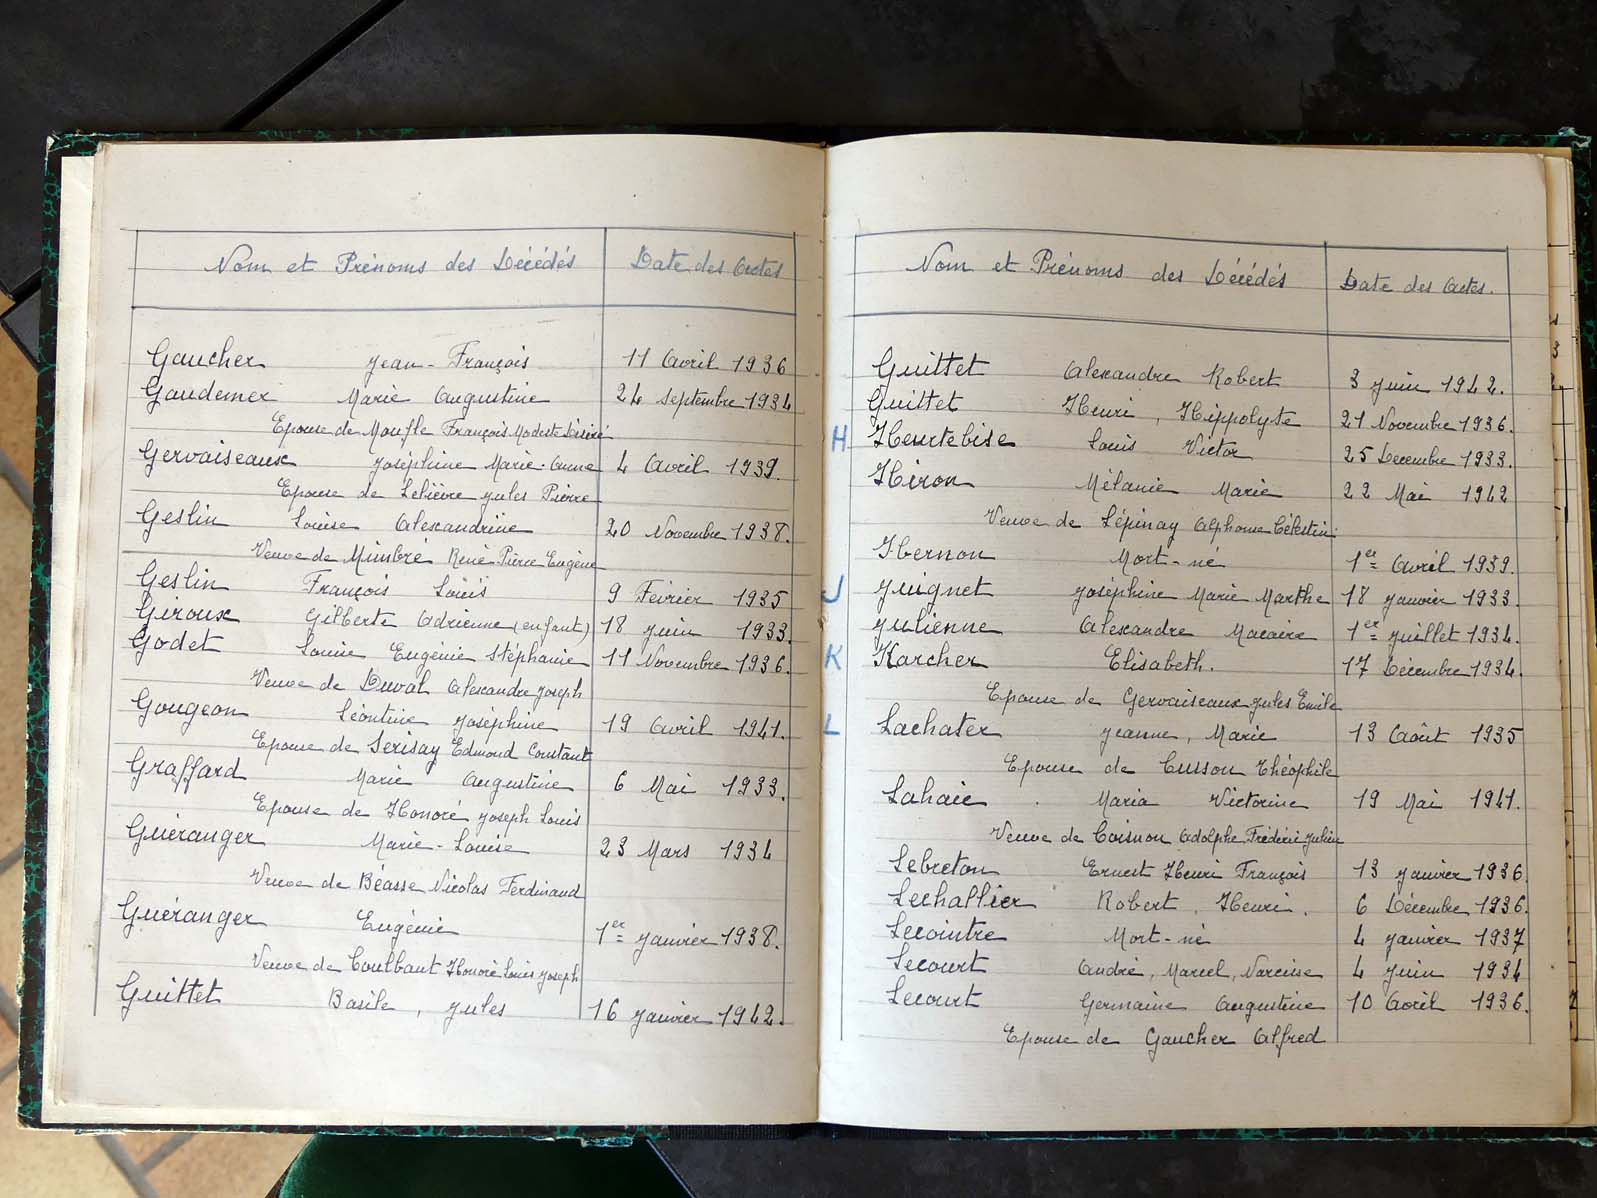 Nom et Prénoms des Décédés Date des Actes
Gaucher Jean-François 11 Avril 1936
Gaudemer Marie Augustine 24 Septembre 1934
Epouse de Moufle François Modeste Désiré
Gervaiseaux Joséphine Marie-Anne 4 Avril 1939.
Epouse de Lelièvre Jules Pierre
Geslin Louise Alexandrine 20 Novembre 1938.
Veuve de Mimbré René Pierre Eugène
Geslin François Louis 9 Février 1935
Giroux Gilberte Adrienne (enfant) 18 Juin 1933.
Godet Louise Eugénie Stéphanie 11 Novembre 1936.
Veuve de Duval Alexandre Joseph
Gougeon Léontine Joséphine 19 Avril 1941.
Epouse de Serisay Edmond Constant
Graffard Marie Augustine 6 Mai 1933.
Epouse de Honoré Joseph Louis
Guéranger Marie-Louise 23 Mars 1934
Veuve de Béasse Nicolas Ferdinand
Guéranger Eugénie 1er Janvier 1938.
Veuve de Coulbaut Honoré Louis Joseph
Guittet Basile, Jules 16 Janvier 1942.
Nom et Prénoms des Décédés Date des Actes.
Guittet Alexandre Robert 3 Juin 1942.
Guittet Henri, Hippolyte 21 Novembre 1936.
H Heurtebise Louis Victor 25 Décembre 1933.
Hiron Mélanie Marie 22 Mai 1942
Veuve de Lépinay Alphonse Célestin
Ibernon Mort-né 1er Avril 1939.
J Juignet Joséphine Marie Marthe 18 Janvier 1933.
Julienne Alexandre Macaire 1er Juillet 1934.
K Karcher Elisabeth. 17 Décembre 1934.
Epouse de Gervaiseaux Jules Emile
L Lachater Jeanne, Marie 13 Août 1935
Epouse de Cusson Théophile
Lahaie Maria Victorine 19 Mai 1941.
Veuve de Coisnon Adolphe Frédéric Julien
Lebreton Ernest Henri François 13 Janvier 1936.
Lechallier Robert, Henri. 6 Décembre 1936.
Lecointre Mort-né 4 Janvier 1937
Lecourt André, Marcel, Narcisse 4 Juin 1934
Lecourt Germaine Augustine 10 Avril 1936.
Epouse de Gaucher Alfred